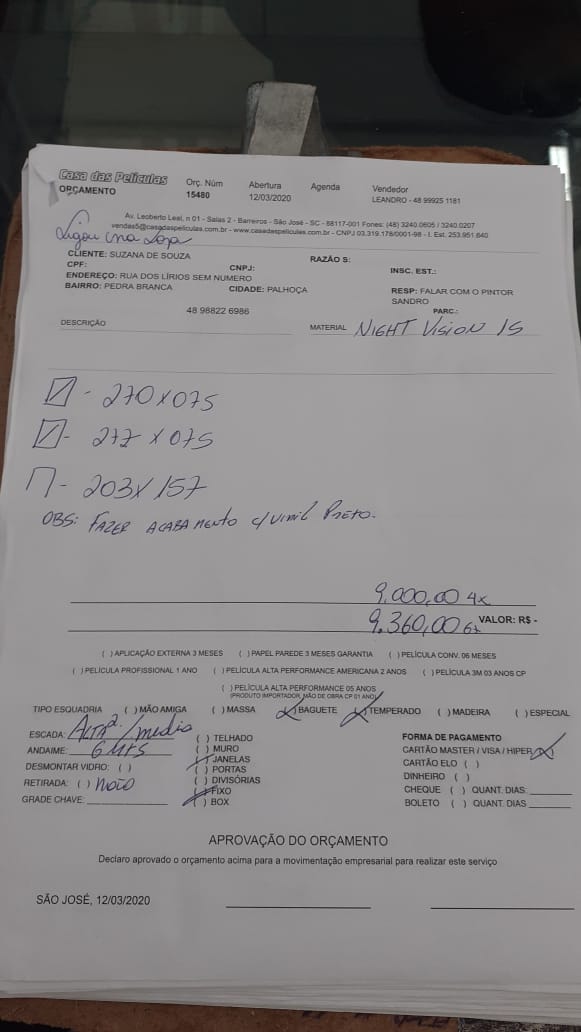 Casa das Películas
ORÇAMENTO
Orç. Núm
15480
Abertura
12/03/2020
Agenda
Vendedor
LEANDRO - 48 99925 1181
Av. Leoberto Leal, n 01 - Salas 2 - Barreiros - São José - SC - 88117-001 Fones: (48) 3240.0605 / 3240.0207
vendas5@casadaspeliculas.com.br - www.casadaspeliculas.com.br - CNPJ 03.319.178/0001-98 - I. Est. 253.951.640
Ligou na Loja
CLIENTE: SUZANA DE SOUZA
RAZÃO S:
CPF:
CNPJ:
INSC. EST.:
ENDEREÇO: RUA DOS LÍRIOS SEM NUMERO
BAIRRO: PEDRA BRANCA
CIDADE: PALHOÇA
RESP: FALAR COM O PINTOR
SANDRO
48 98822 6986
PARC.:
DESCRIÇÃO
MATERIAL NIGHT VISION 15
- 270 x 075
- 277 x 075
- 203 x 157
OBS: FAZER ACABAMENTO c/ VINIL PRETO.
9.000,00 4x
9.360,00 6x VALOR: R$ -
( ) APLICAÇÃO EXTERNA 3 MESES ( ) PAPEL PAREDE 3 MESES GARANTIA ( ) PELÍCULA CONV. 06 MESES
( ) PELÍCULA PROFISSIONAL 1 ANO ( ) PELÍCULA ALTA PERFORMANCE AMERICANA 2 ANOS ( ) PELÍCULA 3M 03 ANOS CP
( ) PELÍCULA ALTA PERFORMANCE 05 ANOS
(PRODUTO IMPORTADOR, MÃO DE OBRA CP 01 ANO)
TIPO ESQUADRIA ( ) MÃO AMIGA ( ) MASSA (X) BAGUETE (X) TEMPERADO ( ) MADEIRA ( ) ESPECIAL
ESCADA: ALTA 2 / media
ANDAIME: 6 MTS
DESMONTAR VIDRO: ( )
RETIRADA: ( ) NÃO
GRADE CHAVE:
( ) TELHADO
( ) MURO
(X) JANELAS
( ) PORTAS
( ) DIVISÓRIAS
(X) FIXO
( ) BOX
FORMA DE PAGAMENTO
CARTÃO MASTER / VISA / HIPER (X)
CARTÃO ELO ( )
DINHEIRO ( )
CHEQUE ( ) QUANT. DIAS:
BOLETO ( ) QUANT. DIAS
APROVAÇÃO DO ORÇAMENTO
Declaro aprovado o orçamento acima para a movimentação empresarial para realizar este serviço
SÃO JOSÉ, 12/03/2020